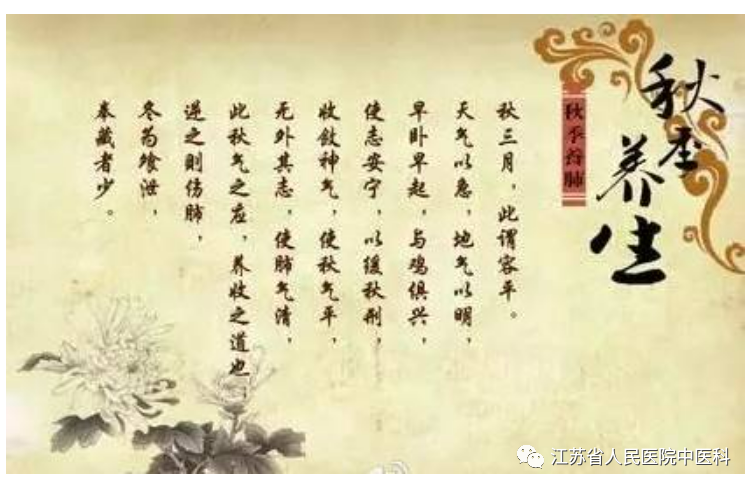 秋季养生
秋季养肺
秋三月，此谓容平。
天气以急，地气以明，
早卧早起，与鸡俱兴，
使志安宁，以缓秋刑，
收敛神气，使秋气平，
无外其志，使肺气清，
此秋气之应，养收之道也，
逆之则伤肺，
冬为飧泄，
奉藏者少。
江苏省人民医院中医科